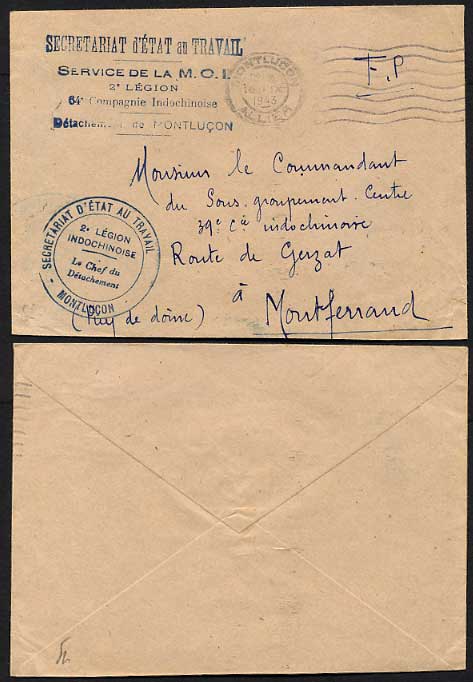 SECRETARIAT d'ÉTAT au TRAVAIL
SERVICE DE LA M.O.I.
2e LÉGION
64e Compagnie Indochinoise
Détachement de MONTLUÇON
MONTLUÇON
1943
ALLIER
F.P
Monsieur le Commandant
du Sous-groupement Centre
39e Cie indochinoise
Route de Gerzat
à
Montferrand
(Puy de dôme)
SECRETARIAT D'ÉTAT AU TRAVAIL
2e LÉGION
INDOCHINOISE
Le Chef du
Détachement
- MONTLUÇON -